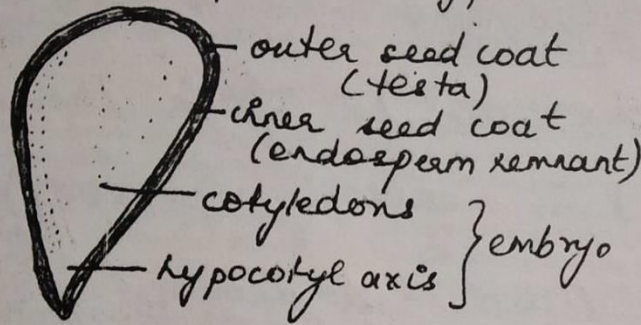 outer seed coat
(testa)
inner seed coat
(endosperm remnant)
cotyledons
hypocotyl axis
embryo